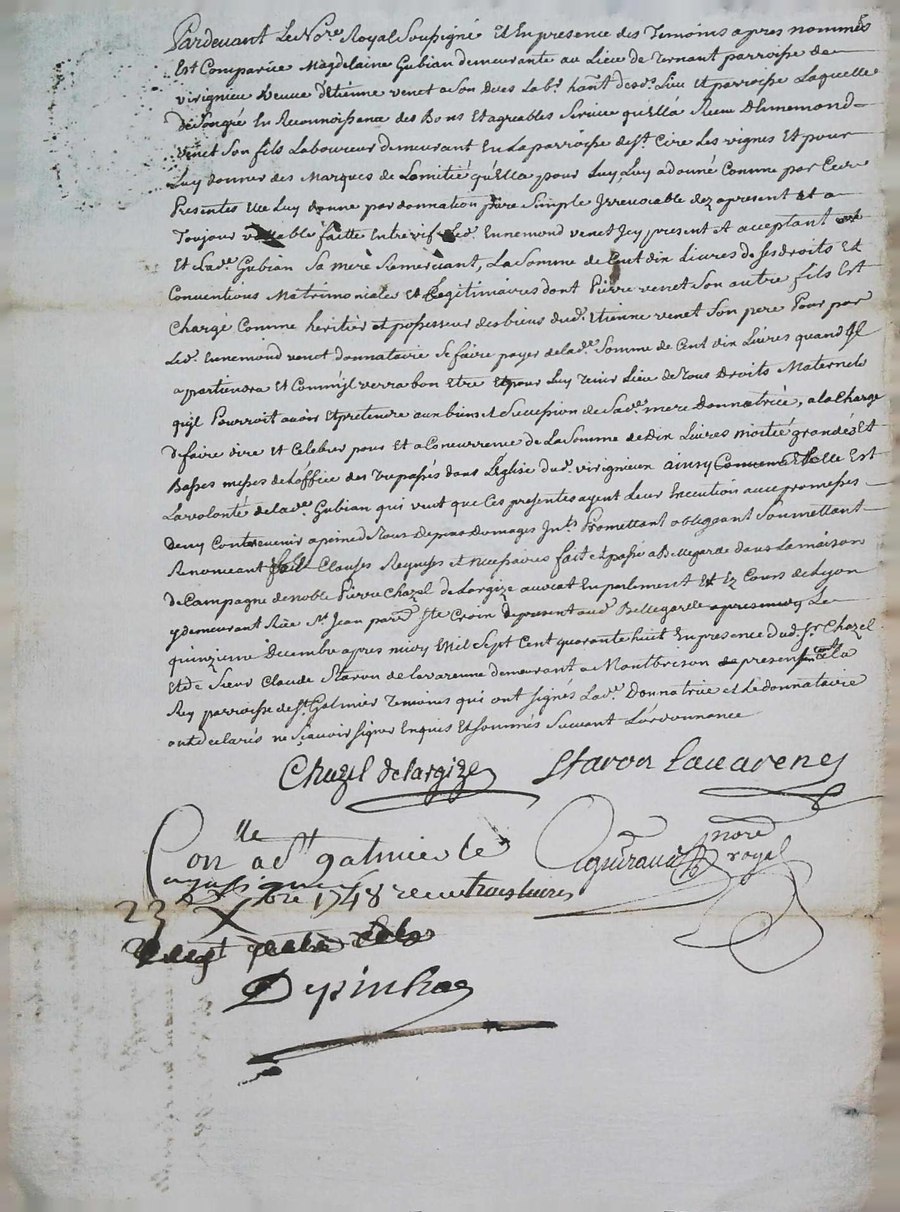 Pardevant Le Nore. Royal Soussigné Et En presence des Temoins apres nommés
Est Comparüe Magdelaine Gubian demeurante au Lieu de Tornant parroisse de
virignieu veuve d'Etienne venet a Son deces Labr. hant. desd. Lieu et parroisse Laquelle
de Songré En Reconnoissance des Bons Et agreables Service quElla Receu D'Ennemond
venet Son fils Laboureur demeurant En La parroisse de St. Cire Les vignes Et pour
Luy donner des Marques de Lamitié quElla pour Luy Luy a donné Comme par Ces
Presentes Elle Luy donne par donnation pure Simple Irrevocable dez apresent Et a
Toujour vallable faitte Entre vif Led. Ennemond venet Icy present Et acceptant
Et Lade. Gubian Sa mere Remerciant, La Somme de Cent dix Livres de ses droits Et
Conventions Matrimoniales Et Legitimaires dont Pierre venet Son autre fils Est
Chargé Comme heritier et possesseur des biens dud. Etienne venet Son pere Pour par
Led. Ennemond venet donnataire Se faire payer de Lade. Somme de Cent dix Livres quand Il
appartiendra Et Comm'jl verra bon Etre Et pour Luy Tenir Lieu de Tous Droits Maternels
qu'jl Pourroit avoir Et pretendre aux biens et Succession de Sade. mere Donnatrice, a la Charge
de faire dire et Celebrer pour Et a Concurrence de La Somme de Dix Livres moitié grandes Et
Basses messes de L'office des Trepassés dans L'Eglise dud. virignieux ainsy Comme Elle Est
La volonté de Lade. Gubian qui veut que Ces presentes ayent Leur Execution avec promesses
de ny Contrevenir a peine de Tous Depens Domages Jnts. Promettant obligeant Soumettant
Renonceant Clauses Requises et necessaires fait et passé a Bellegarde dans La maison
de Campagne de noble Pierre Chazel de Largize avocat En parlement Et Ez Cours de Lyon
y demeurant Rüe St. Jean parre. Ste Croix de present aud. Bellegarde apres midy Le
quinzieme Decembre apres midy Mil Sept Cent quarante huit En presence dud. Sr. Chazel
Et de Sieur Claude Staron de Lavarenne demeurant a Montbrison de present a La
Rey parroisse de St. Galmier Temoins qui ont signés Lade. Donnatrice et Le donnataire
ont declarés ne Sçavoir signer Enquis Et Sommés Suivant L'ordonnance
Chazel de Largize Staron Lavarenne
Conlle a St galmier le
nore royal
23 Xbre 1748 recu trois livres
vingt